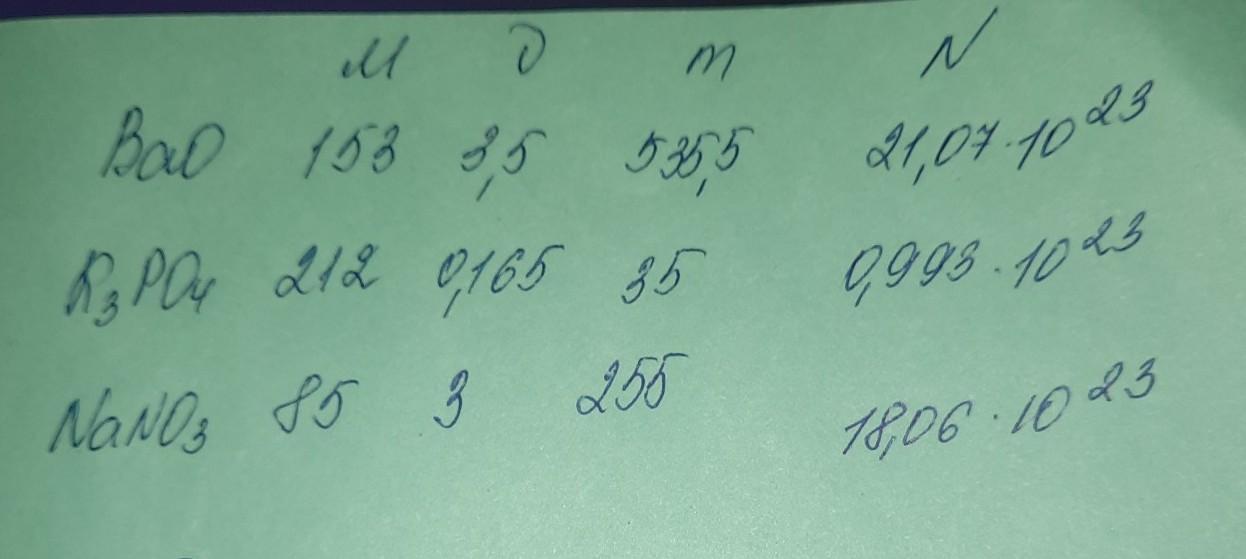 M ν m N
BaO 153 3,5 535,5 21,07·10²³
K₃PO₄ 212 0,165 35 0,993·10²³
NaNO₃ 85 3 255 18,06·10²³